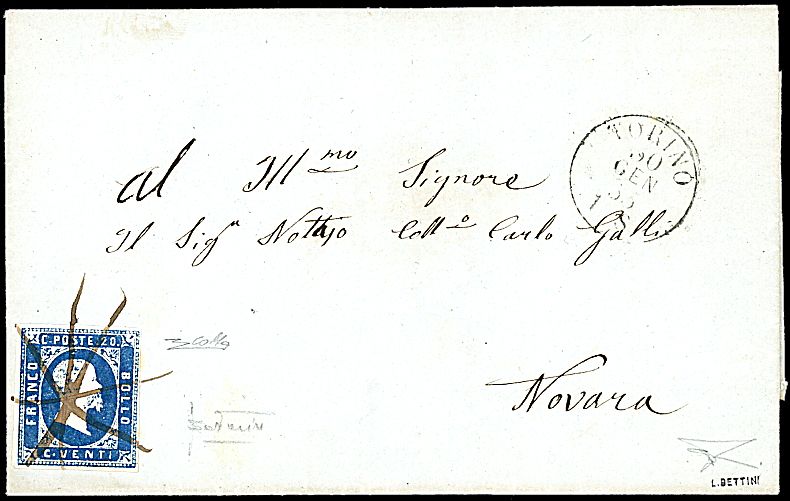 TORINO
GEN
al Ill.mo Signore
Il Sig.r Notajo Coll.o Carlo Galli
C. POSTE. 20.
FRANCO
BOLLO
C. VENTI
Novara
L. BETTINI